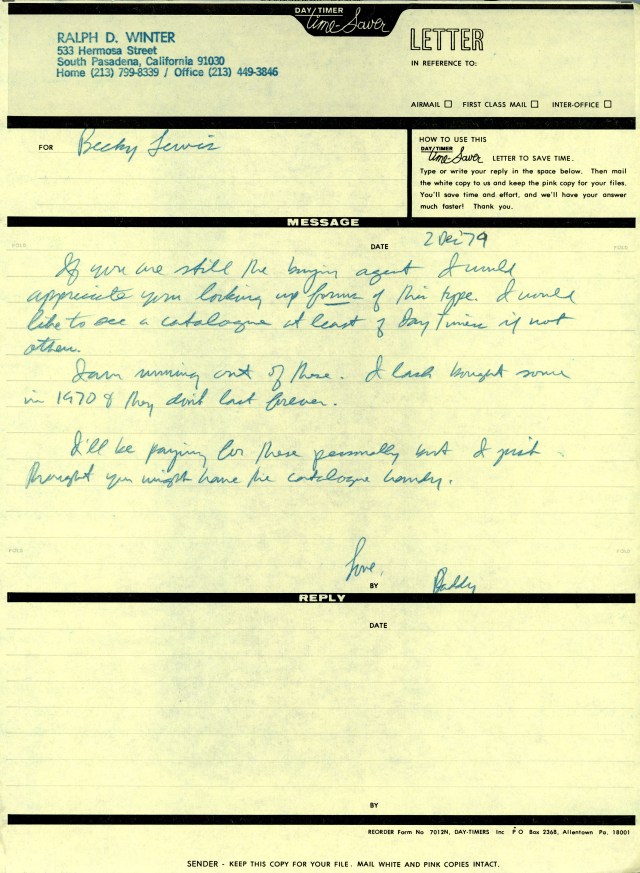 DAY/TIMER
Time-Saver
LETTER
RALPH D. WINTER
533 Hermosa Street
South Pasadena, California 91030
Home (213) 799-8339 / Office (213) 449-3846
IN REFERENCE TO:
AIRMAIL ☐ FIRST CLASS MAIL ☐ INTER-OFFICE ☐
FOR Becky Lewis
HOW TO USE THIS
DAY/TIMER
Time-Saver LETTER TO SAVE TIME.
Type or write your reply in the space below. Then mail
the white copy to us and keep the pink copy for your files.
You'll save time and effort, and we'll have your answer
much faster! Thank you.
MESSAGE
DATE 2 Dec 79
FOLD FOLD
If you are still the buying agent I would
appreciate your looking up forms of this type. I would
like to see a catalogue at least of Day Timers if not
others.
I am running out of these. I last bought some
in 1970 & they don't last forever.
I'll be paying for these personally but I just
thought you might have the catalogue handy.
FOLD FOLD
Love,
BY Daddy
REPLY
DATE
BY
REORDER Form No 7012N, DAY-TIMERS Inc P O Box 2368, Allentown Pa. 18001
SENDER - KEEP THIS COPY FOR YOUR FILE. MAIL WHITE AND PINK COPIES INTACT.